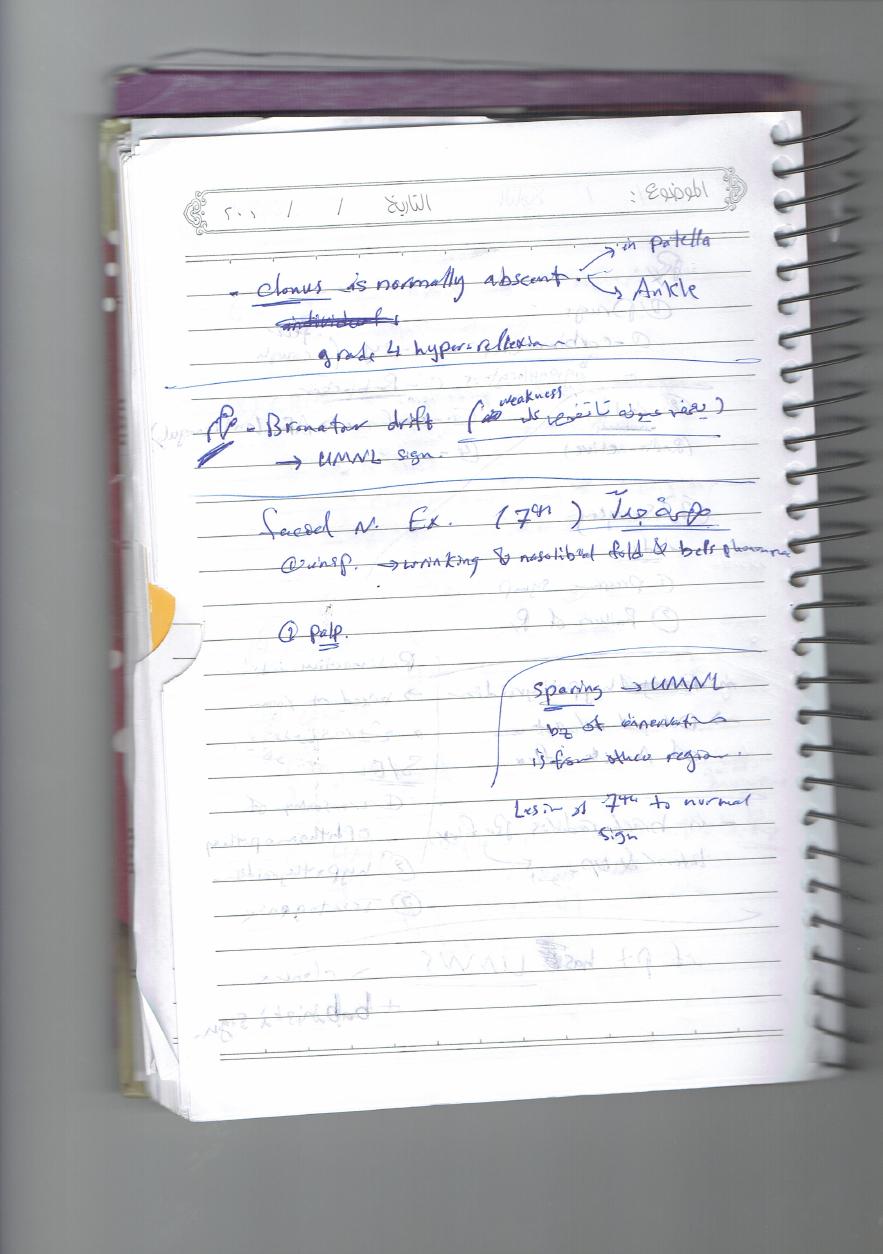 الموضوع : التاريخ / / ٢٠٠
- clonus is normally abscent. → in patella
→ Ankle
grade 4 hyper-reflexia
- Bronator drift ( weakness يغمض عيونه )
→ UMNL sign.
Facoal N. Ex. (7th) مهمة جداً
① insp. → wrinking & nasolibial fold & bells phenomena
② palp.
sparing → UMNL
bz of einervation
is from other region.
Lesion of 7th to normal
sign